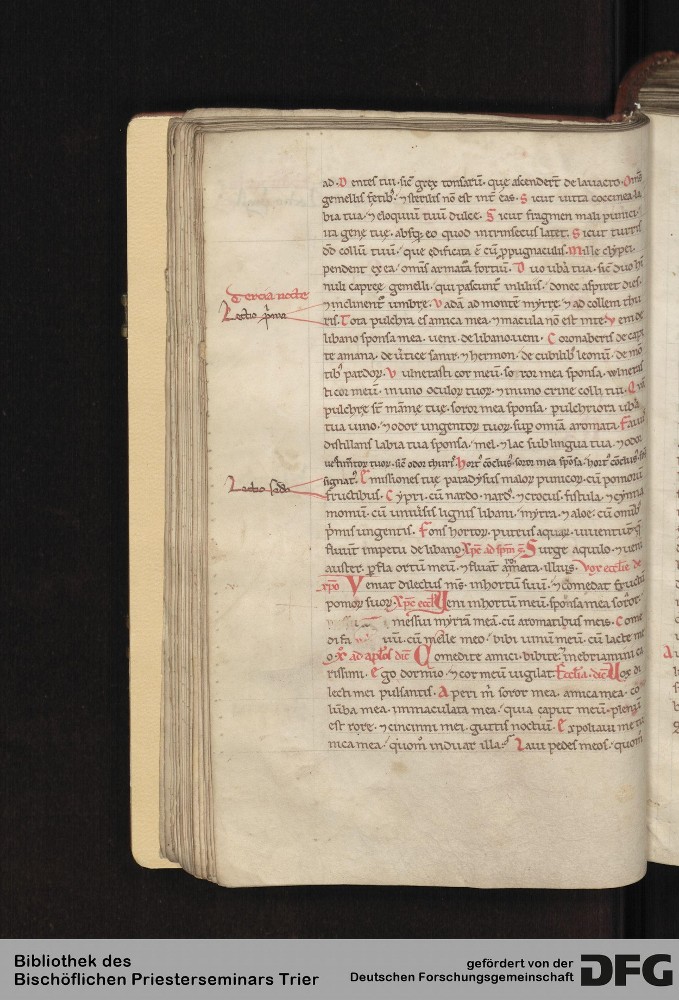 ad. Dentes tui. sic̄ grex tonsarū. que ascenderт̄ de lauacro. Oms̄
gemellis fetibꝰ. ⁊ sterilis nō est int̄ eas. Sicut uitta coccinea la
bia tua. ⁊ eloquiū tuū dulce. Sicut fragmen mali punici.
ita genę tuę. absqꝫ eo quod intrinsecus latet. Sicut turris
dd̄ collū tuū. que edificata ē cū ꝓpugnaculis. Mille clypei
pendent ex ea. omnis armatura fortiū. Duo ubera tua. sic̄ duo hin
nuli capreę gemelli. qui pascunt̄ in liliis. donec aspiret dies.
Tercia nocte
⁊ inclinent̄ umbre. Vadā ad montē myrre. ⁊ ad collem thu
Lectio prima
ris. Tota pulchra es amica mea. ⁊ macula nō est in te. Veni de
libano sponsa mea. ueni. de libano ueni. Coronaberis de capi
te amana. de uertice sanir. ⁊ hermon. de cubilibꝰ leonū. de mon
tibꝰ pardoꝝ. Vulnerasti cor meū. soror mea sponsa. uulneras
ti cor meū. in uno oculoꝝ tuoꝝ. ⁊ in uno crine colli tui. Quā
pulchrę st̄ māme tuę. soror mea sponsa. pulchriora ubera
tua uino. ⁊ odor ungentoꝝ tuoꝝ. sup̄ omia aromata. Fauus
distillans labia tua sponsa. mel. ⁊ lac sub lingua tua. ⁊ odor
uestimtoꝝ tuoꝝ. sic̄ odor thuris. Hortꝰ cōclusꝰ. soror mea spōsa. hortꝰ cōclusꝰ. fons
signatꝰ. Emissiones tuę paradysus maloꝝ punicoꝝ. cū pomoꝝ
Lectio scda
fructibus. Cypri. cū nardo. nardꝰ. ⁊ crocus. fistula. ⁊ cynna
momū. cū uniuersis lignis libani. myrra. ⁊ aloe. cū omibꝰ
primis ungentis. Fons hortoꝝ. puteus aquaꝝ. uiuentiū que
fluunt impetu de libano. Xpc̄ ad spm̄ s. Surge aquilo. ⁊ ueni
auster. perfla ortū meū. ⁊ fluant aromata illius. Vox ecclie de
xpo Veniat dilectus ms̄ in hortū suū. ⁊ comedat fructū
pomoꝝ suoꝝ. Xpc̄ eccl Veni in hortū meū. sponsa mea soror.
messui myrrā meā. cū aromatibus meis. Come
di fa uū. cū melle meo. bibi uinum meū. cū lacte me
o. X ad aplos dic̄ Comedite amici. bibite. ⁊ inebriamini ca
rissimi. Ego dormio. ⁊ cor meū uigilat. Ecclia. dic̄ Vox di
lecti mei pulsantis. Aperi m̄ soror mea. amica mea. co
lūba mea. immaculata mea. quia caput meū plenū
est rore. ⁊ cincinni mei. guttis noctiū. Expoliaui me tu
nica mea. quom̄ induar illa. Laui pedes meos. quom̄
Bibliothek des
Bischöflichen Priesterseminars Trier
gefördert von der
Deutschen Forschungsgemeinschaft
DFG